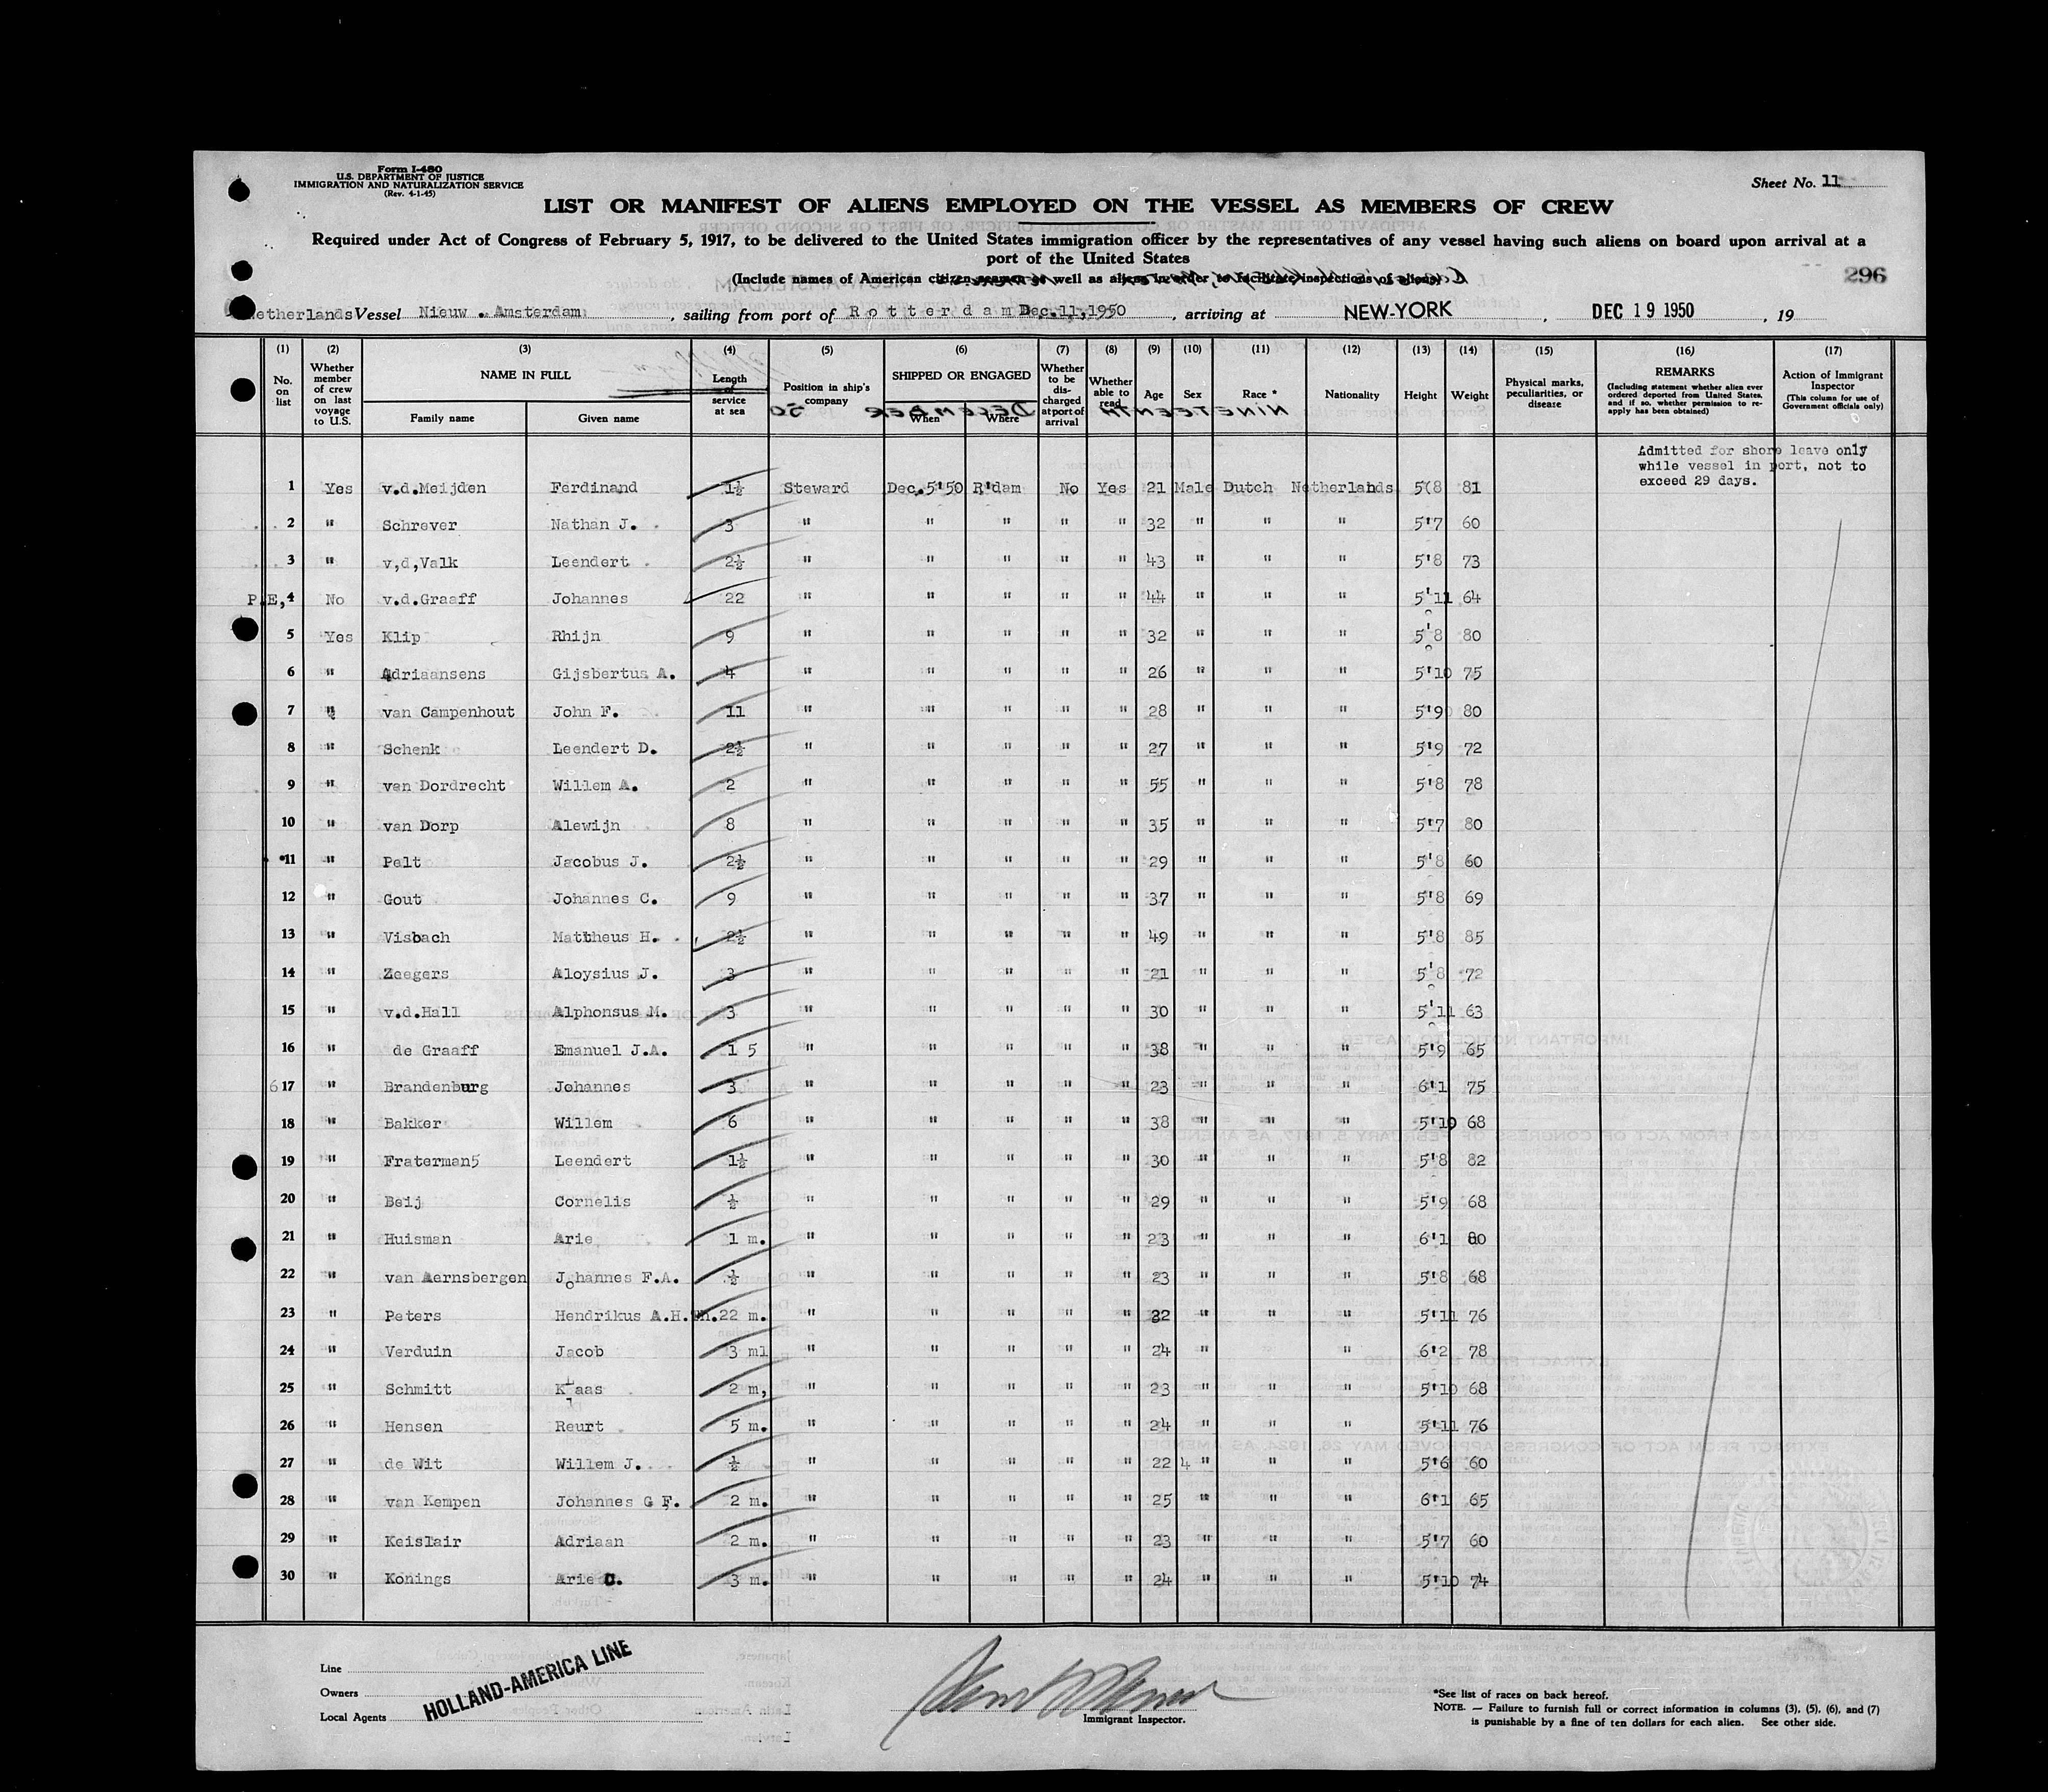 Form I-480
U.S. DEPARTMENT OF JUSTICE
IMMIGRATION AND NATURALIZATION SERVICE
(Rev. 4-1-45)
Sheet No. 11
LIST OR MANIFEST OF ALIENS EMPLOYED ON THE VESSEL AS MEMBERS OF CREW
Required under Act of Congress of February 5, 1917, to be delivered to the United States immigration officer by the representatives of any vessel having such aliens on board upon arrival at a
port of the United States
(Include names of American citizen seamen as well as aliens in order to facilitate inspections of aliens)
296
Netherlands Vessel Nieuw . Amsterdam , sailing from port of Rotterdam Dec.11,1950 , arriving at NEW-YORK , DEC 19 1950 , 19
(1) (2) (3) (4) (5) (6) (7) (8) (9) (10) (11) (12) (13) (14) (15) (16) (17)
No. on list
Whether member of crew on last voyage to U.S.
NAME IN FULL
Family name Given name
Length of service at sea
Position in ship's company
SHIPPED OR ENGAGED
When Where
Whether to be discharged at port of arrival
Whether able to read
Age Sex Race * Nationality Height Weight
Physical marks, peculiarities, or disease
REMARKS
(Including statement whether alien ever ordered deported from United States, and if so, whether permission to re-apply has been obtained)
Action of Immigrant Inspector
(This column for use of Government officials only)
Admitted for shore leave only
while vessel in port, not to
exceed 29 days.
1 Yes v.d.Meijden Ferdinand 1½ Steward Dec.5'50 R'dam No Yes 21 Male Dutch Netherlands 5(8 81
2 " Schrever Nathan J. 3 " " " " " 32 " " " 5'7 60
3 " v,d,Valk Leendert 2½ " " " " " 43 " " " 5'8 73
P.E, 4 No v.d.Graaff Johannes 22 " " " " " 44 " " " 5'11 64
5 Yes Klip Rhijn 9 " " " " " 32 " " " 5'8 80
6 " Adriaansens Gijsbertus A. 4 " " " " " 26 " " " 5'10 75
7 " van Campenhout John F. 11 " " " " " 28 " " " 5'9 80
8 " Schenk Leendert D. 2½ " " " " " 27 " " " 5'9 72
9 " van Dordrecht Willem A. 2 " " " " " 55 " " " 5'8 78
10 " van Dorp Alewijn 8 " " " " " 35 " " " 5'7 80
11 " Pelt Jacobus J. 2½ " " " " " 29 " " " 5'8 60
12 " Gout Johannes C. 9 " " " " " 37 " " " 5'8 69
13 " Visbach Mattheus H. 2½ " " " " " 49 " " " 5'8 85
14 " Zeegers Aloysius J. 3 " " " " " 21 " " " 5'8 72
15 " v.d.Hall Alphonsus M. 3 " " " " " 30 " " " 5'11 63
16 " de Graaff Emanuel J.A. 1 5 " " " " " 38 " " " 5'9 65
17 " Brandenburg Johannes 3 " " " " " 23 " " " 6'1 75
18 " Bakker Willem 6 " " " " " 38 " " " 5'10 68
19 " Fraterman5 Leendert 1½ " " " " " 30 " " " 5'8 82
20 " Beij Cornelis ½ " " " " " 29 " " " 5'9 68
21 " Huisman Arie 1 m. " " " " " 23 " " " 6'1 80
22 " van Aernsbergen Johannes F.A. ½ " " " " " 23 " " " 5'8 68
23 " Peters Hendrikus A.H.Th. 22 m. " " " " " 32 " " " 5'11 76
24 " Verduin Jacob 3 ml " " " " " 24 " " 6'2 78
25 " Schmitt Klaas 2 m, " " " " " 23 " " " 5'10 68
26 " Hensen Reurt 5 m. " " " " " 24 " " " 5'11 76
27 " de Wit Willem J. ½ " " " " " 22 4 " " " 5'6 60
28 " van Kempen Johannes G F. 2 m. " " " " " 25 " " " 6'1 65
29 " Keislair Adriaan 2 m. " " " " " 23 " " " 5'7 60
30 " Konings Arie C. 3 m. " " " " " 24 " " " 5'10 74
Line
Owners
Local Agents
HOLLAND-AMERICA LINE
Immigrant Inspector.
*See list of races on back hereof.
NOTE. — Failure to furnish full or correct information in columns (3), (5), (6), and (7)
is punishable by a fine of ten dollars for each alien. See other side.